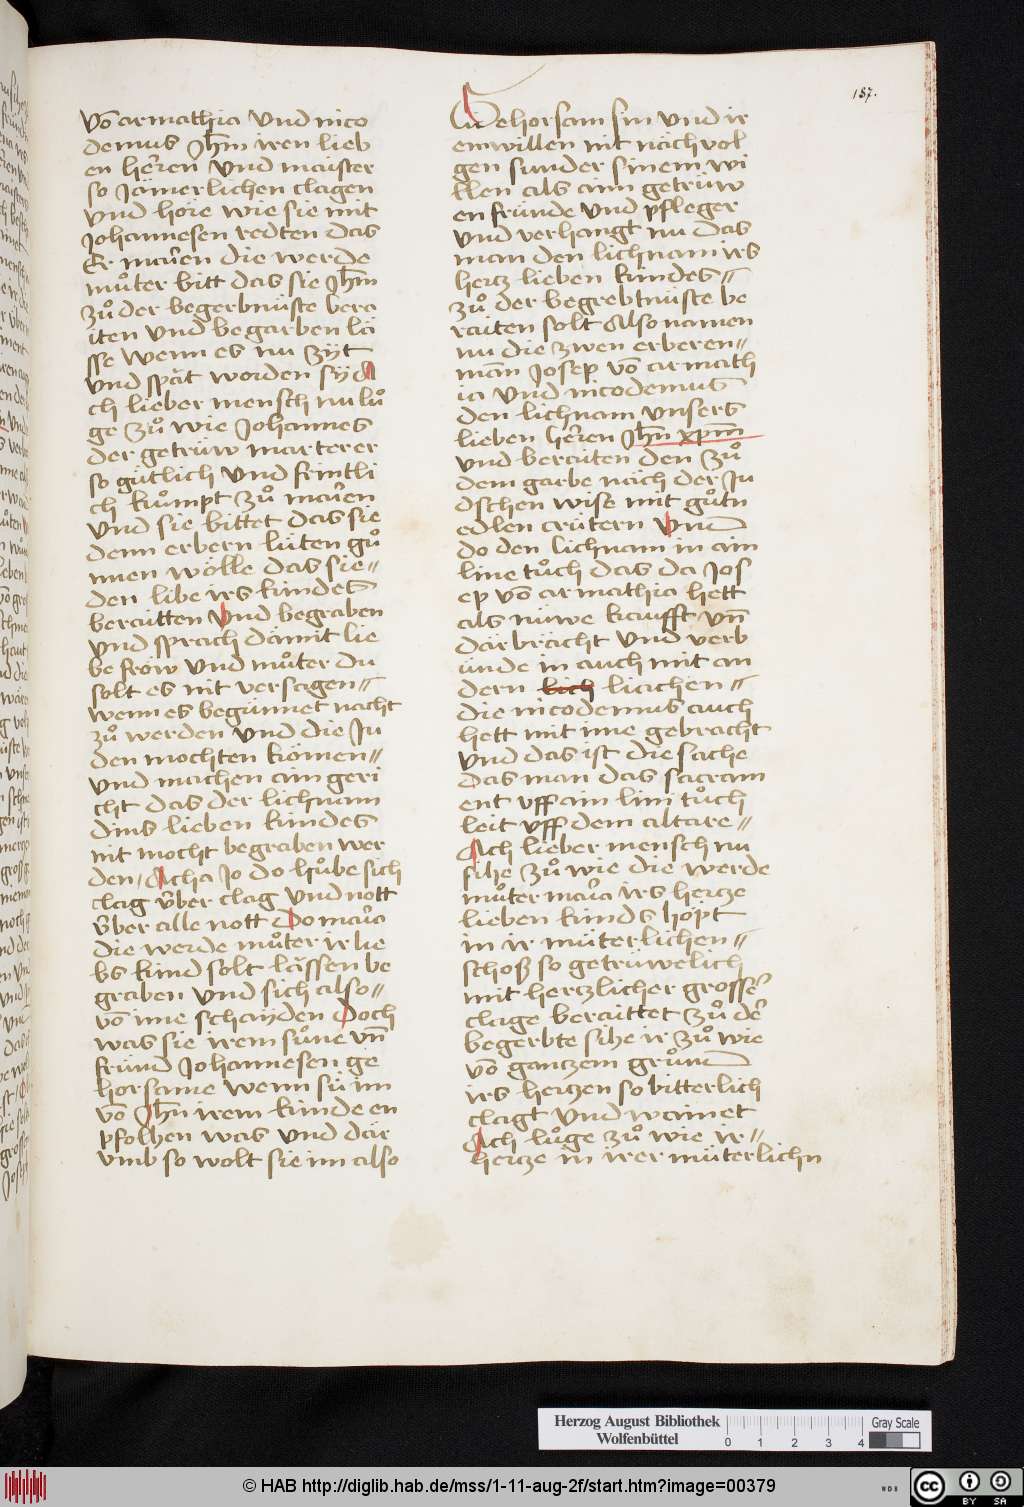 187.
vō armathia vnd nico
demus Jhm iren lieb
en herren vnd maister
so Jämerlichen clagen
vnd höre wie sie mit
Johannesen redten das
Er marien die werde
můter bitt das sie Jhm
zů der begerbnüste bera
iten vnd begarben lä
sse wenn es nu zÿt
vnd spät worden sÿ A
ch lieber mensch nu lů
ge zů wie Johannes
der getrüw marterer
so gütlich vnd frintli
ch kůmpt zů marien
vnd sie bittet das sie
denn erbern lüten gů
nnen wölle das sie
den libe irs kindes
beraitten vnd begraben
vnd sprach dämit lie
be fröw vnd můter du
solt es nit versagen
wenn es begünnet nacht
zů werden vnd die Ju
den mochten kömen
vnd machen ain geri
cht das der lichnam
dins lieben kindes
nit mocht begraben wer
den, Acha Jo do hůbe sich
clag v̈ber clag vnd nott
v̈ber alle nott Do maria
die werde můter ir lie
bs kind solt lässen be
graben vnd sich also
vō ime schaÿden Doch
was sie irem sůne vn̄
fründ Johannesen ge
horsame wenn sü im
vō Jhn̄ irem kinde en
pfolhen was vnd där
vmb so wolt sie im also
Gehorsam sin vnd ir
emwillen nit näch vol
gen sunder sinem wi
llen als aim getrüw
en fründe vnd pfleger
vnd verhangt nu das
man den lichnam irs
hertz lieben kindes
zů der begrebtnüste be
raiten solt Also namen
nu die zwen erberen
man Josep vō armath
ia vnd nicodemus
den lichnam vnsers
lieben herren Jhn̄ xpm̄
vnd beraiten den zů
dem garbe näch der Ju
dschen wise mit gůtn
edlen crütern vnnd
do den lichnam in ain
line tůch das da Jos
ep vō armathia hett
als nüwe kaufft vn̄
där brächt vnd verb
ünde in auch mit an
dern lich liachen
die nicodemus auch
hett mit ime gebracht
vnd das ist die sache
das man das sacram
ent vff ain lini tůch
leit vff dem altare
Ach lieber mensch nu
sihe zů wie die werde
můter maria irs hertze
lieben kinds höpt
in ir müterlichen
schoß so getrüwelich
mit hertzlicher grosser
clage beraittet zů der
begerbte sihe ir zů wie
vō gantzem grůnnd
irs hertzen so bitterlich
clagt vnd wainet
Ach lůge zů wie ir
hertze in irer müterlichn
Herzog August Bibliothek
Wolfenbüttel
0 1 2 3 4
Gray Scale
© HAB http://diglib.hab.de/mss/1-11-aug-2f/start.htm?image=00379
WDB
cc BY SA